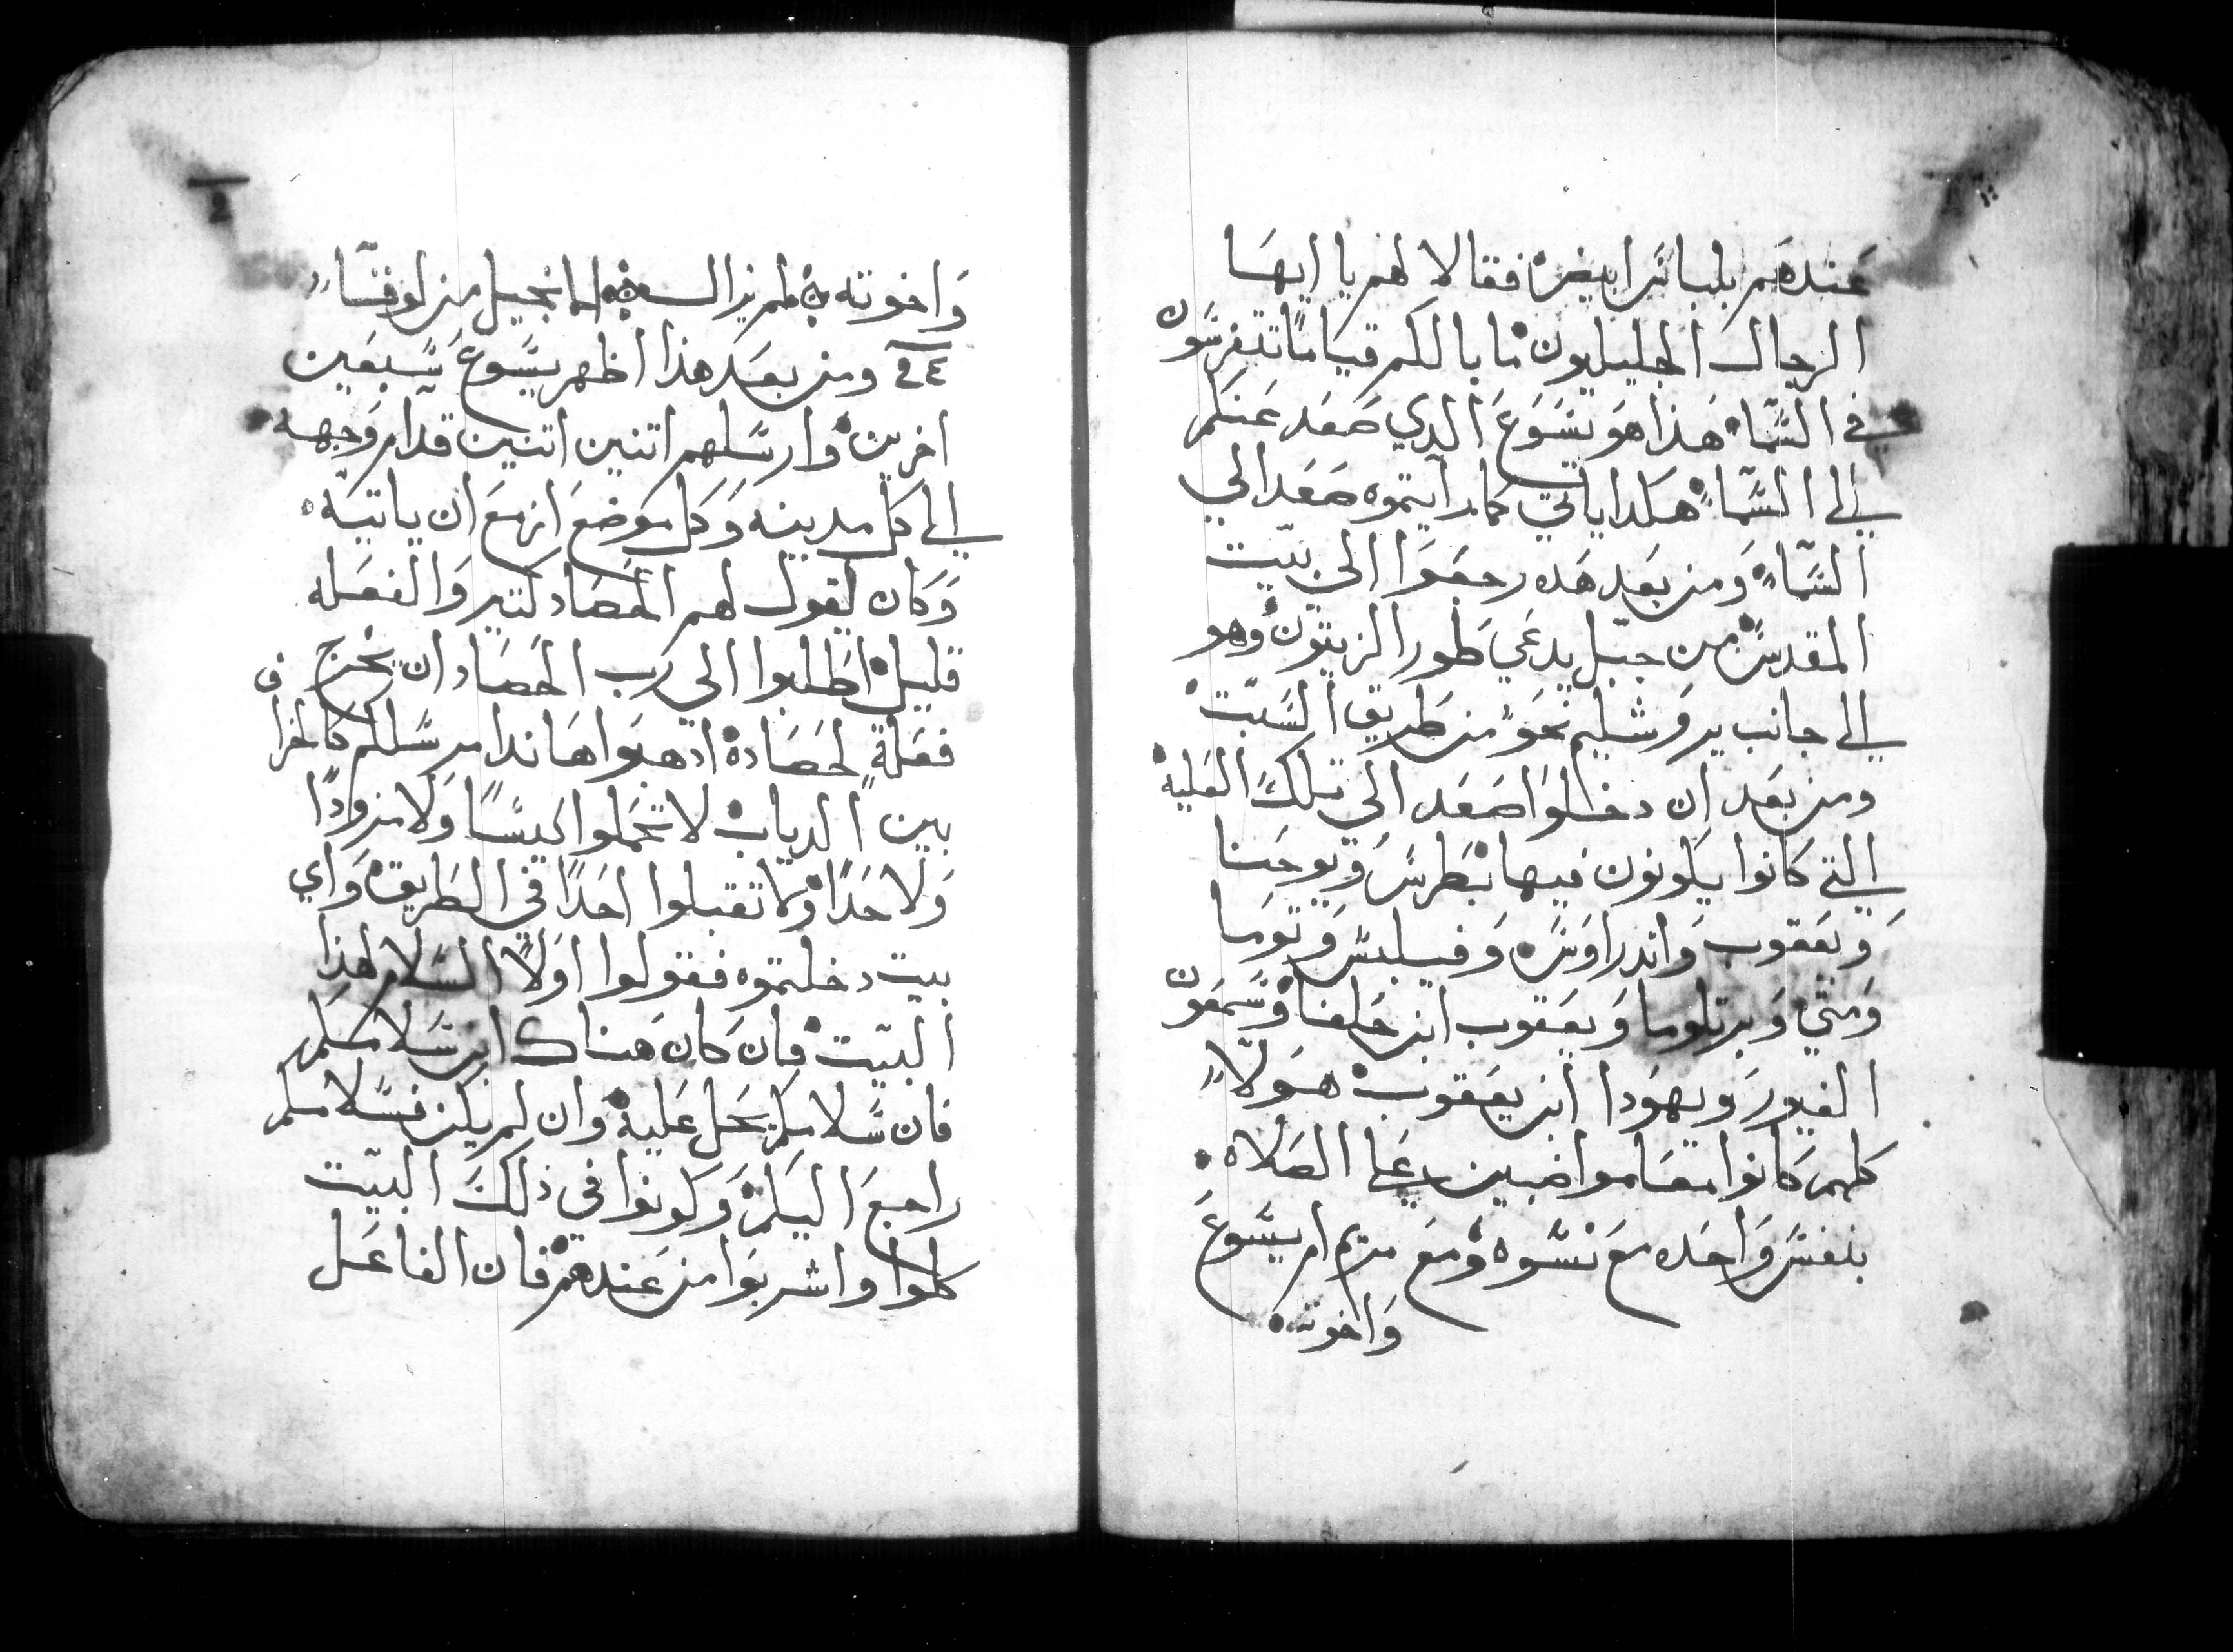 عندهم بلباس ابيض فقالا لهم يا ايها
الرجال الجليليون ما بالكم قياما تتفرسون
في السماء هذا هو يسوع الدي صعد عنكم
الى السماء هكدا ياتي كما رايتموه صعد الي
السماء ومن بعد هده رجعوا الى بيت
المقدس من جبل يدعي طور الزيتون وهو
الى جانب يروشليم نحو من طريق السبت
ومن بعد ان دخلوا صعد الى تلك العليه
التي كانوا يكونون فيها بطرس ويوحنا
ويعقوب واندراوس وفيلبس وتوما
ومتي وبرتلوما ويعقوب ابن حلفا وسمعون
الغيور ويهودا ابن يعقوب هولاء
كلهم كانوا معا مواضبين على الصلاه
بنفس واحده مع نسوه ومع مريم ام يسوع
واخوته
2
واخوته الانجيل من لوقا
٢٤ ومن بعد هذا اظهر يسوع سبعين
اخرين وارسلهم اتنين اتنين قدام وجهه
الى كل مدينه وكل موضع ازمع ان ياتيه
وكان يقول لهم الحصاد كتير والفعله
قليل اطلبوا الي رب الحصاد ان يخرج
فعلة لحصاده ادهبوا هاندا مرسلكم كالخراف
بين الدياب لا تحملوا كيسا ولا مزودا
ولا حدا ولا تقبلوا احدا في الطريق واي
بيت دخلتموه فقولوا اولا السلام لهذا
البيت فان كان هناك ابن سلامكم
فان سلامكم يحل عليه وان لم يكن فسلامكم
راجع اليكم وكونوا في ذلك البيت
كلوا واشربوا من عندهم فان الفاعل